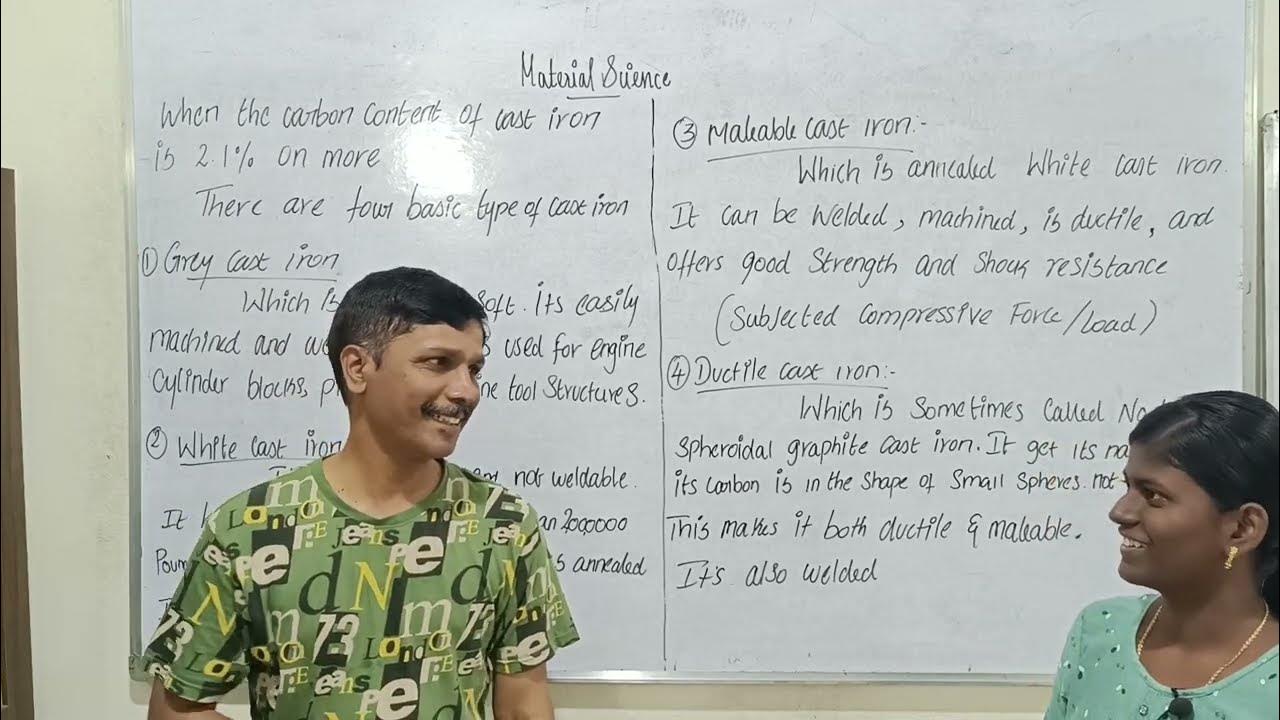 Material Science
When the carbon content of cast iron
is 2.1% on more
There are four basic type of cast iron
① Grey cast iron
Which is soft. Its easily
machined and used for engine
Cylinder blocks, tool Structures.
② White cast iron
not weldable.
It 200,000
is annealed
③ Maleable cast iron:-
Which is annealed White cast iron.
It can be welded, machined, is ductile, and
offers good Strength and Shock resistance
(Subjected compressive Force/Load)
④ Ductile cast iron:-
Which is Sometimes Called
Spheroidal graphite cast iron. It get its
its carbon is in the shape of Small Spheres. not
This makes it both ductile & maleable.
It's also welded
London
jeans
73
London
jeans